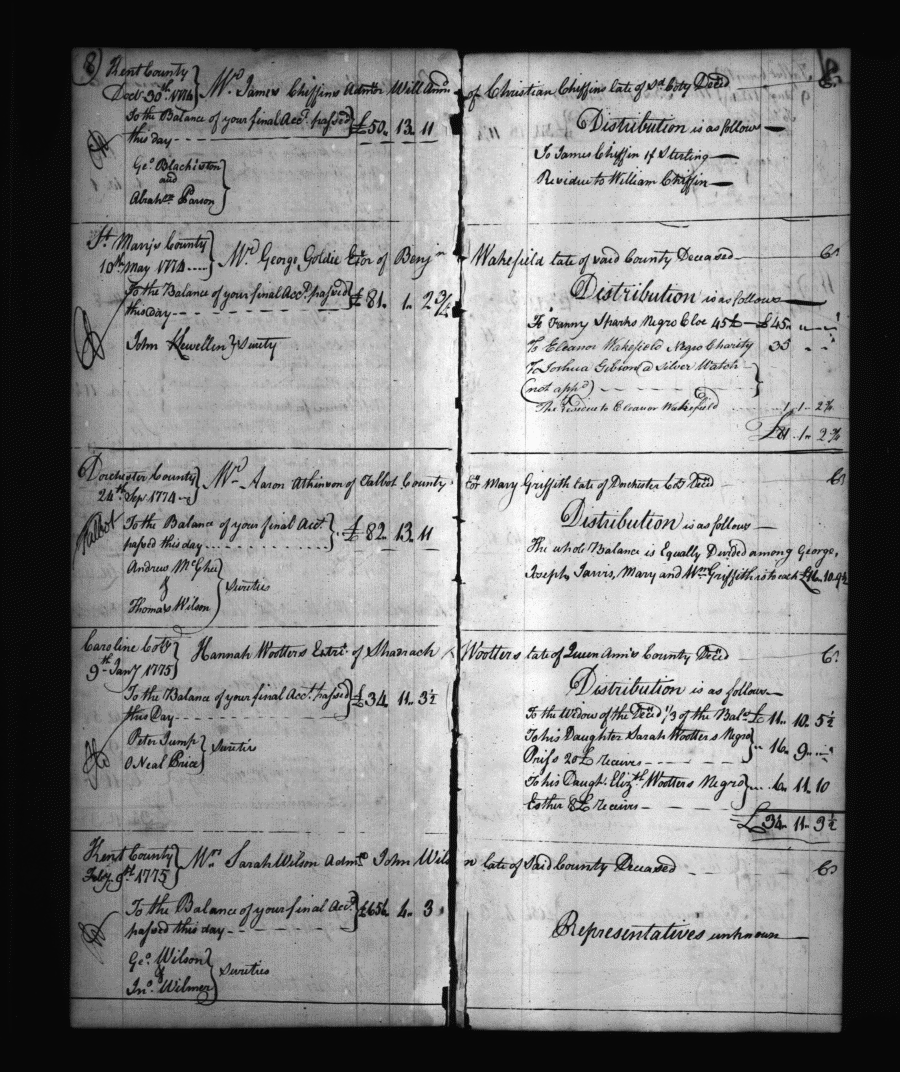 8
Kent County
Decr. 30th. 1774 } Mr. James Chiffins Admor Will Ann of Christian Chiffins late of sd. Coty Deced
To the Balance of your final Acct. passed
this day } £50 " 13 " 11
Geo. Blackiston
and
Abrahm. Parson
Distribution is as follows
To James Chiffin 1s Sterling
Residue to William Chiffin
St. Mary's County
10th. May 1774 } Mr. George Goldie Exor of Benjn Wakefield late of said County Deceased
To the Balance of your final Acct. passed
this day } £81 " 1 " 2 3/4
John Llewellin } Surity
Distribution is as follows
To Fanny Sparks Negro Cloe 45£ £45 " "
To Eleanor Wakefield Negro Charity 35 " "
To Joshua Gibson a Silver Watch
(not appd.)
The Residue to Eleanor Wakefield 1 " 1 " 2 3/4
£81 " 1 " 2 3/4
Dorchester County
24th. Sep. 1774 } Mr. Aaron Atkinson of Talbot County Exr Mary Griffith late of Dorchester Coty Deced
Talbot
To the Balance of your final Acct.
passed this day } £82 " 13 " 11
Andrew McGhee
&
Thomas Wilson } Sureties
Distribution is as follows
The whole Balance is Equally Divided among George,
Joseph, Jarvis, Mary and Wm. Griffith is to each £16 " 10 " 9 1/4
Caroline Coty
9th. Jany 1775 } Hannah Wootters Extrx of Shadrach Wootters late of Queen Ann's County Deced
To the Balance of your final Acct. passed
this Day } £34 " 11 " 3 1/2
Peter Jump
O Neal Price } Sureties
Distribution is as follows
To the Widow of the Deced 1/3 of the Bale. £11 " 10 " 5 1/2
To his Daughter Sarah Wootters Negro
20£ receives } 16 " 9 "
To his Daught. Elizth. Wootters Negro
Esther 8£ receives } 6 " 11 " 10
£34 " 11 " 3 1/2
Kent County
Feby 9th. 1775 } Mrs. Sarah Wilson Admx John Wilson late of Said County Deceased
To the Balance of your final Acct.
passed this day } £656 " 4 " 3
Geo. Wilson
&
Jno. Wilmer } Sureties
Representatives unknown